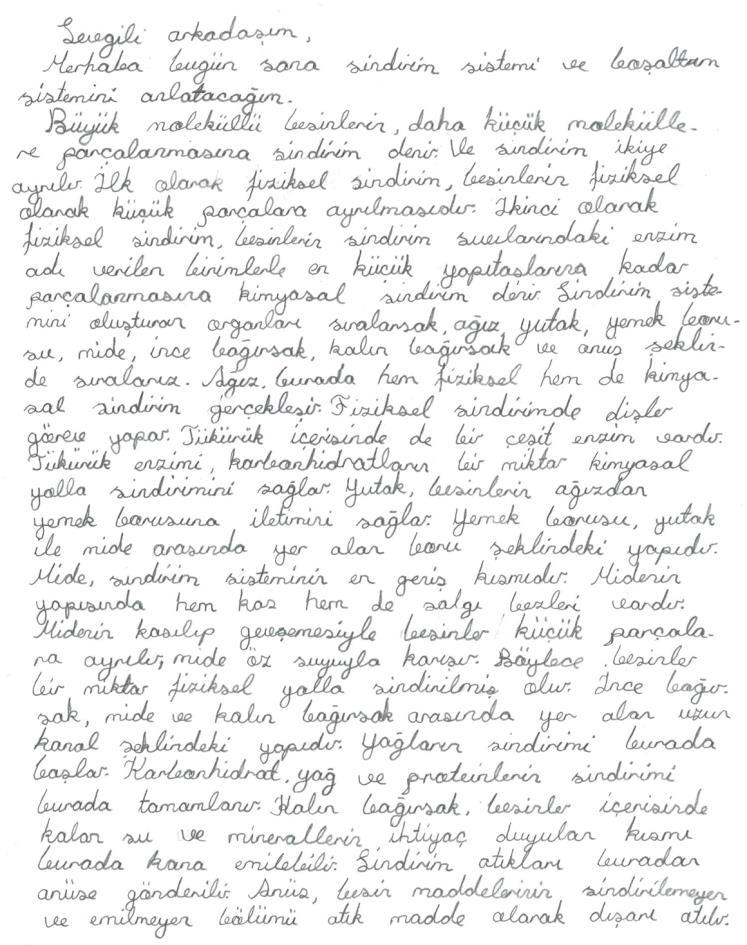 Sevgili arkadaşım,
Merhaba bugün sana sindirim sistemi ve boşaltım
sistemini anlatacağım.
Büyük moleküllü besinlerin, daha küçük molekülle-
re parçalanmasına sindirim denir. Ve sindirim ikiye
ayrılır. İlk olarak fiziksel sindirim, besinlerin fiziksel
olarak küçük parçalara ayrılmasıdır. İkinci olarak
fiziksel sindirim, besinlerin sindirim sıvılarındaki enzim
adı verilen birimlerle en küçük yapıtaşlarına kadar
parçalanmasına kimyasal sindirim denir. Sindirim siste-
mini oluşturan organları sıralarsak, ağız, yutak, yemek boru-
su, mide, ince bağırsak, kalın bağırsak ve anüs şeklin-
de sıralarız. Ağız, burada hem fiziksel hem de kimya-
sal sindirim gerçekleşir. Fiziksel sindirimde dişler
görev yapar. Tükürük içerisinde de bir çeşit enzim vardır.
Tükürük enzimi, karbonhidratların bir miktar kimyasal
yolla sindirimini sağlar. Yutak, besinlerin ağızdan
yemek borusuna iletimini sağlar. Yemek borusu, yutak
ile mide arasında yer alan boru şeklindeki yapıdır.
Mide, sindirim sisteminin en geniş kısmıdır. Midenin
yapısında hem kas hem de salgı bezleri vardır.
Midenin kasılıp gevşemesiyle besinler küçük parçala-
ra ayrılır, mide öz suyuyla karışır. Böylece besinler
bir miktar fiziksel yolla sindirilmiş olur. İnce bağır-
sak, mide ve kalın bağırsak arasında yer alan uzun
kanal şeklindeki yapıdır. Yağların sindirimi burada
başlar. Karbonhidrat, yağ ve proteinlerin sindirimi
burada tamamlanır. Kalın bağırsak, besinler içerisinde
kalan su ve minerallerin ihtiyaç duyulan kısmı
burada kana emilebilir. Sindirim atıkları buradan
anüse gönderilir. Anüs, besin maddelerinin sindirilemeyen
ve emilmeyen bölümü atık madde olarak dışarı atılır.